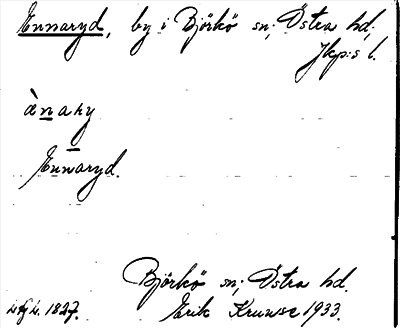 Ennaryd, by i Björkö sn; Östra hd;
Jkp:s l.
ànary
Ennaryd.
Björkö sn; Östra hd.
1827. Erik Kruuse 1933.